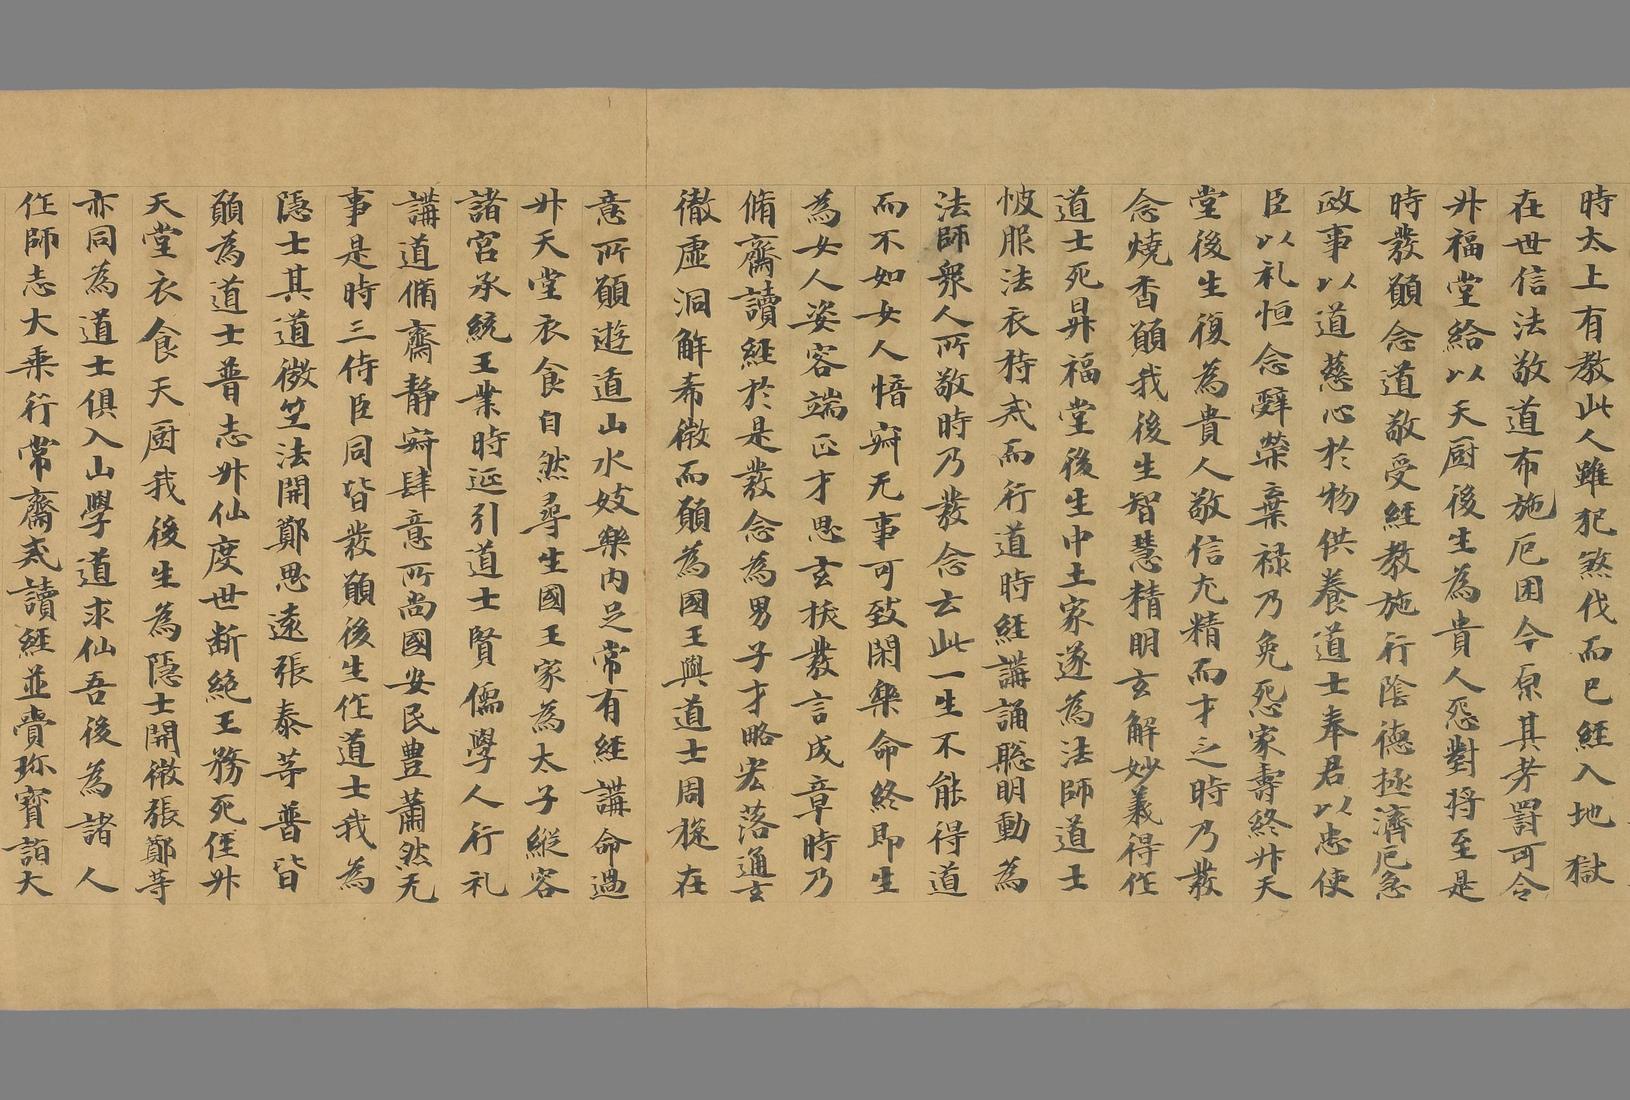 時太上有教此人雖犯煞伐而已經入地獄
在世信法敬道布施厄困今原其考罰可令
升福堂給以天厨後生為貴人惌對將至是
時發願念道敬受經教施行陰德拯濟厄急
政事以道慈心於物供養道士奉君以忠使
臣以礼恒念辭榮棄禄乃免惌家壽終升天
堂後生復為貴人敬信尤精而才之時乃發
念燒香願我後生智慧精明玄解妙義得作
道士死昇福堂後生中土家遂為法師道士
帔服法衣持戒而行道時經講誦聡明動為
法師衆人所敬時乃發念云此一生不能得道
而不如女人愔㝷无事可致閑樂命終即生
為女人姿容端正才思玄挨發言成章時乃
脩齋讀經於是發念為男子才略宏落通玄
徹虛洞解希微而願為國王與道士周旋在
意所願遊道山水妓樂内足常有經講命過
升天堂衣食自然尋生國王家為太子縱容
諸宮承統王業時延引道士賢儒學人行礼
講道脩齋静㝷肆意所尚國安民豊蕭然无
事是時三侍臣同皆發願後生作道士我為
隱士其道微笁法開鄭思遠張泰等普皆
願為道士普志升仙度世断絶王務死俓升
天堂衣食天厨我後生為隱士開微張鄭等
亦同為道士俱入山學道求仙吾後為諸人
作師志大乗行常齋戒讀經並賫珎寳詣大